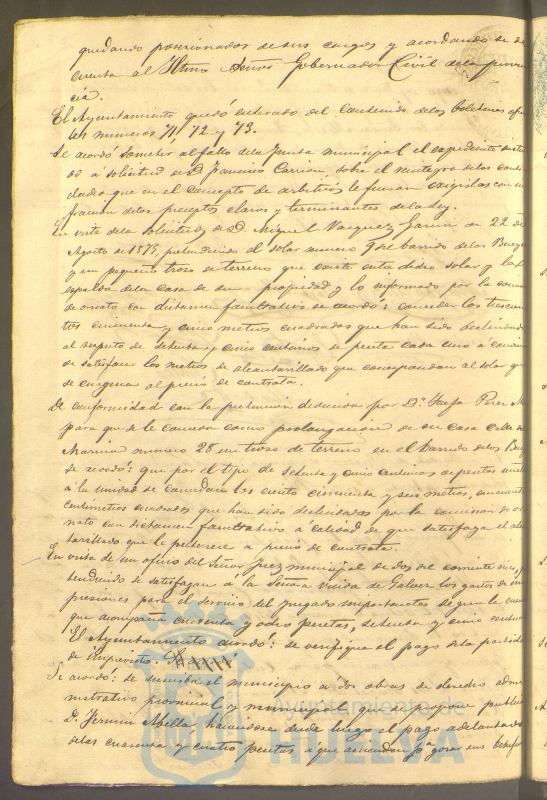 quedando posesionados de sus cargos y acordando se dé
cuenta al Iltmo Señor Gobernador Civil de la provin
cia.
El Ayuntamiento quedó enterado del contenido de los Boletines ofi
les numeros 71, 72 y 73.
Se acordó someter al fallo de la Junta municipal el expediente
á solicitud de D. Francisco Carrion, sobre el reintegro de las canti
dades que en el concepto de arbitrios le fueron exigidas con in
fraccion de los preceptos claros y terminantes de la Ley.
En vista de la solicitud de D. Miguel Vazquez Garcia de 22 de
Agosto de 1879, pretendiendo el solar numero 9 del barrio de los
y un pequeño trozo de terreno que existe entre dicho solar y la
espalda de la casa de su propiedad y lo informado por la comision
de ornato con dictamen facultativo se acordó: conceder los trescien
tos cincuenta y cinco metros cuadrados que han sido deslindados
al respecto de setenta y cinco centimos de peseta cada uno a condicion
de satisfacer los metros de alcantarillado que correspondan al solar que
de enagena al precio de contrata.
De conformidad con la pretension deducida por Dª Josefa Perez
para que se le conceda como prolongacion de su casa calle de
Marina numero 28 un trozo de terreno en el barrio de los
se acordó: que por el tipo de setenta y cinco centimos de peseta
á la unidad se concedan los ciento cincuenta y seis metros,
centimetros cuadrados que han sido deslindados por la comision de or
nato con dictamen facultativo á calidad de que satisfaga el alcan
tarillado que le pertenece a precio de contrata.
En vista de un oficio del Señor Juez municipal de dos del corriente mes, pre
tendiendo se satisfagan á la Señora Viuda de Galvez los gastos de im
presiones para el servicio del juzgado importantes segun la cuenta
que acompaña cuarenta y ocho pesetas, setenta y cinco centimos
El Ayuntamiento acordó: se verifique el pago de la partida
de imprevistos.
Se acordó: se suscriba el municipio a dos obras de derecho admi
nistrativo provincial y municipal que se propone publicar
D. Fermin Abella haciendose desde luego el pago adelantado
de las cuarenta y cuatro pesetas á que ascienden pª gozar sus benefi
Ayuntamiento
HUELVA